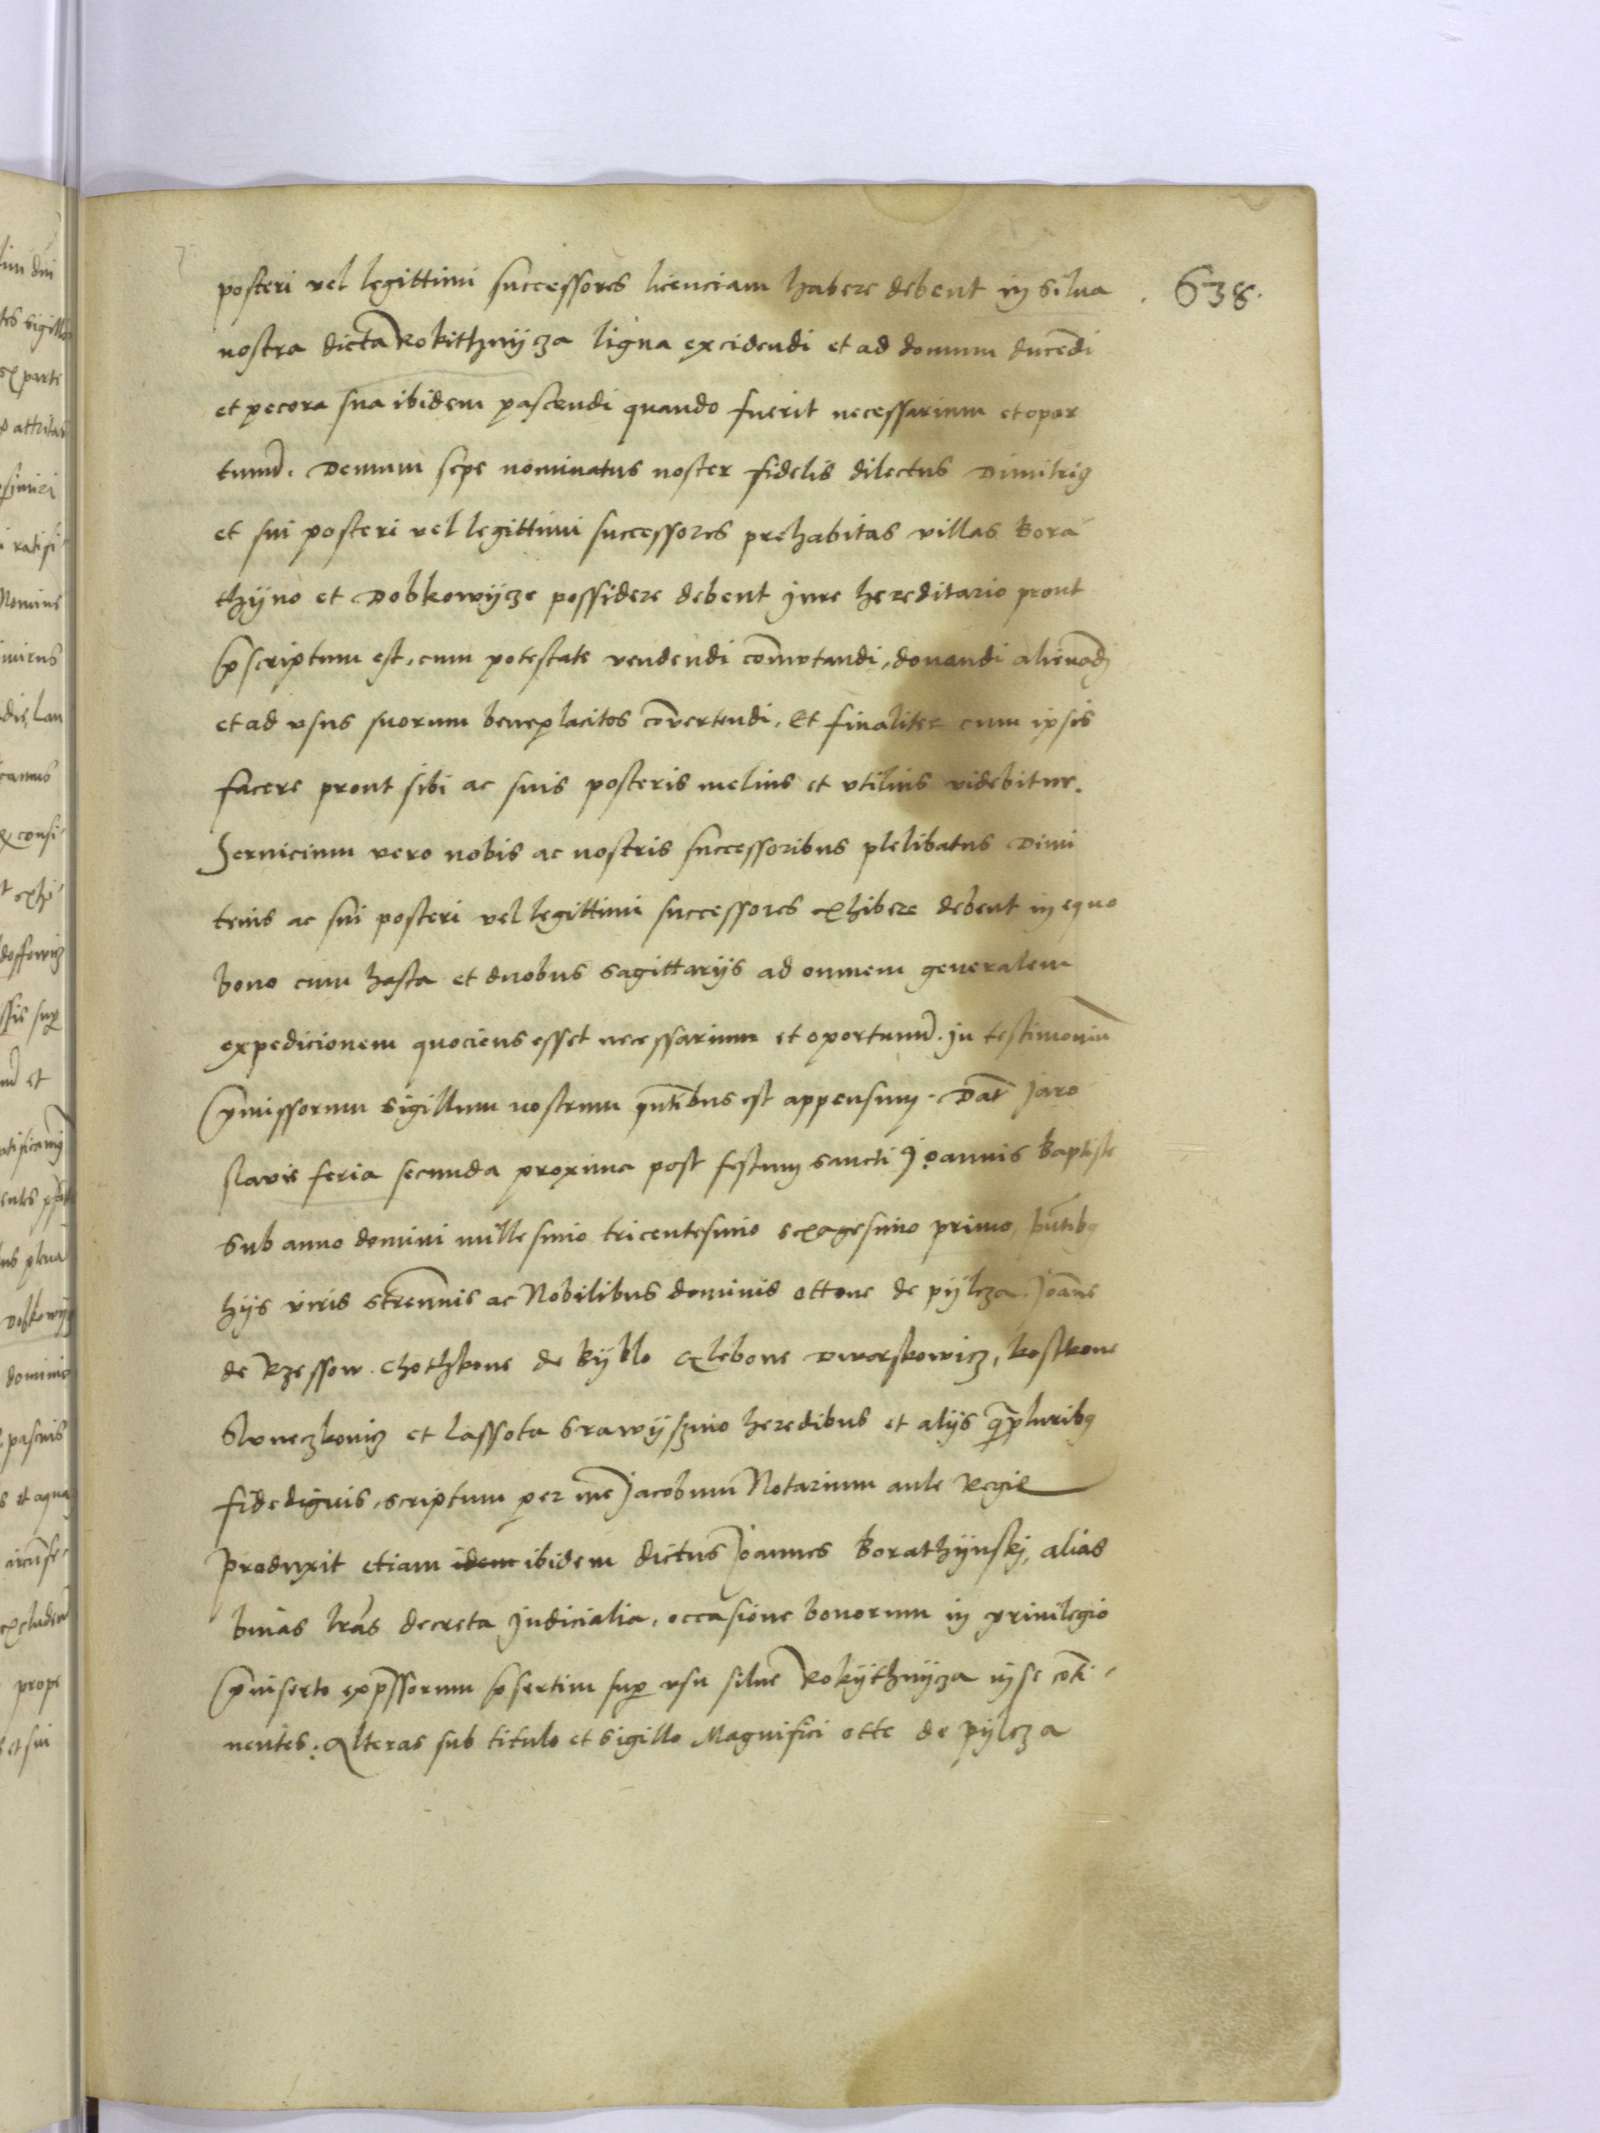 638.
posteri vel legittimi successores licenciam habere debent in silva
nostra dicta Rokithnijcza ligna excidendi et ad domum ducēdi
et pecora sua ibidem pascendi quando fuerit necessarium et opor
tunū. Demum sepe nominatus noster fidelis dilectus Dimitrig
et sui posteri vel legittimi successores prehabitas villas Bora
thijno et Dobkowijcze possidere debent jure hereditario prout
p̄scriptum est, cum potestate vendendi com̄utandi, donandi alienādj
et ad vsus suorum beneplacitos cōvertendi. Et finaliter cum ipsis
facere prout sibi ac suis posteris melius et vtilius videbitur.
Servicium vero nobis ac nostris successoribus plelibatus Dimi
trius ac sui posteri vel legittimi successores exhibere debent in equo
bono cum hasta et duobus sagittarijs ad omnem generalem
expedicionem quociens esset necessarium et oportunū. In testimoniū
p̄missorum sigillum nostrum pn̄tibus est appensum. Dat̄ Jaro
slavie feria secunda proxima post festum sancti Joannis Baptiste
Sub anno domini millesimo tricentesimo sexagesimo primo,
hijs viris stren̄uis ac Nobilibus dominis ottone de pijlcza. Joān̄e
de Rzessow. Chothkone de Bijblo Chlebone Dworskowicz, kostkone
Sloneczkowicz et Lassota Srawijszmo heredibus et alijs q̄pluribg
fidedignis, scriptum per me Jacobum Notarium aule Regie
Produxit etiam idem ibidem dictus Joannes Borathijnskj, alias
binas lrās decreta judicialia, occasione bonorum in privilegio
p̄inserto exp̄ssorum p̄sertim sup vsu silve Rokijthnijcza in se cōti-
nentes. Alteras sub titulo et sigillo Magnifici otte de pijlcza